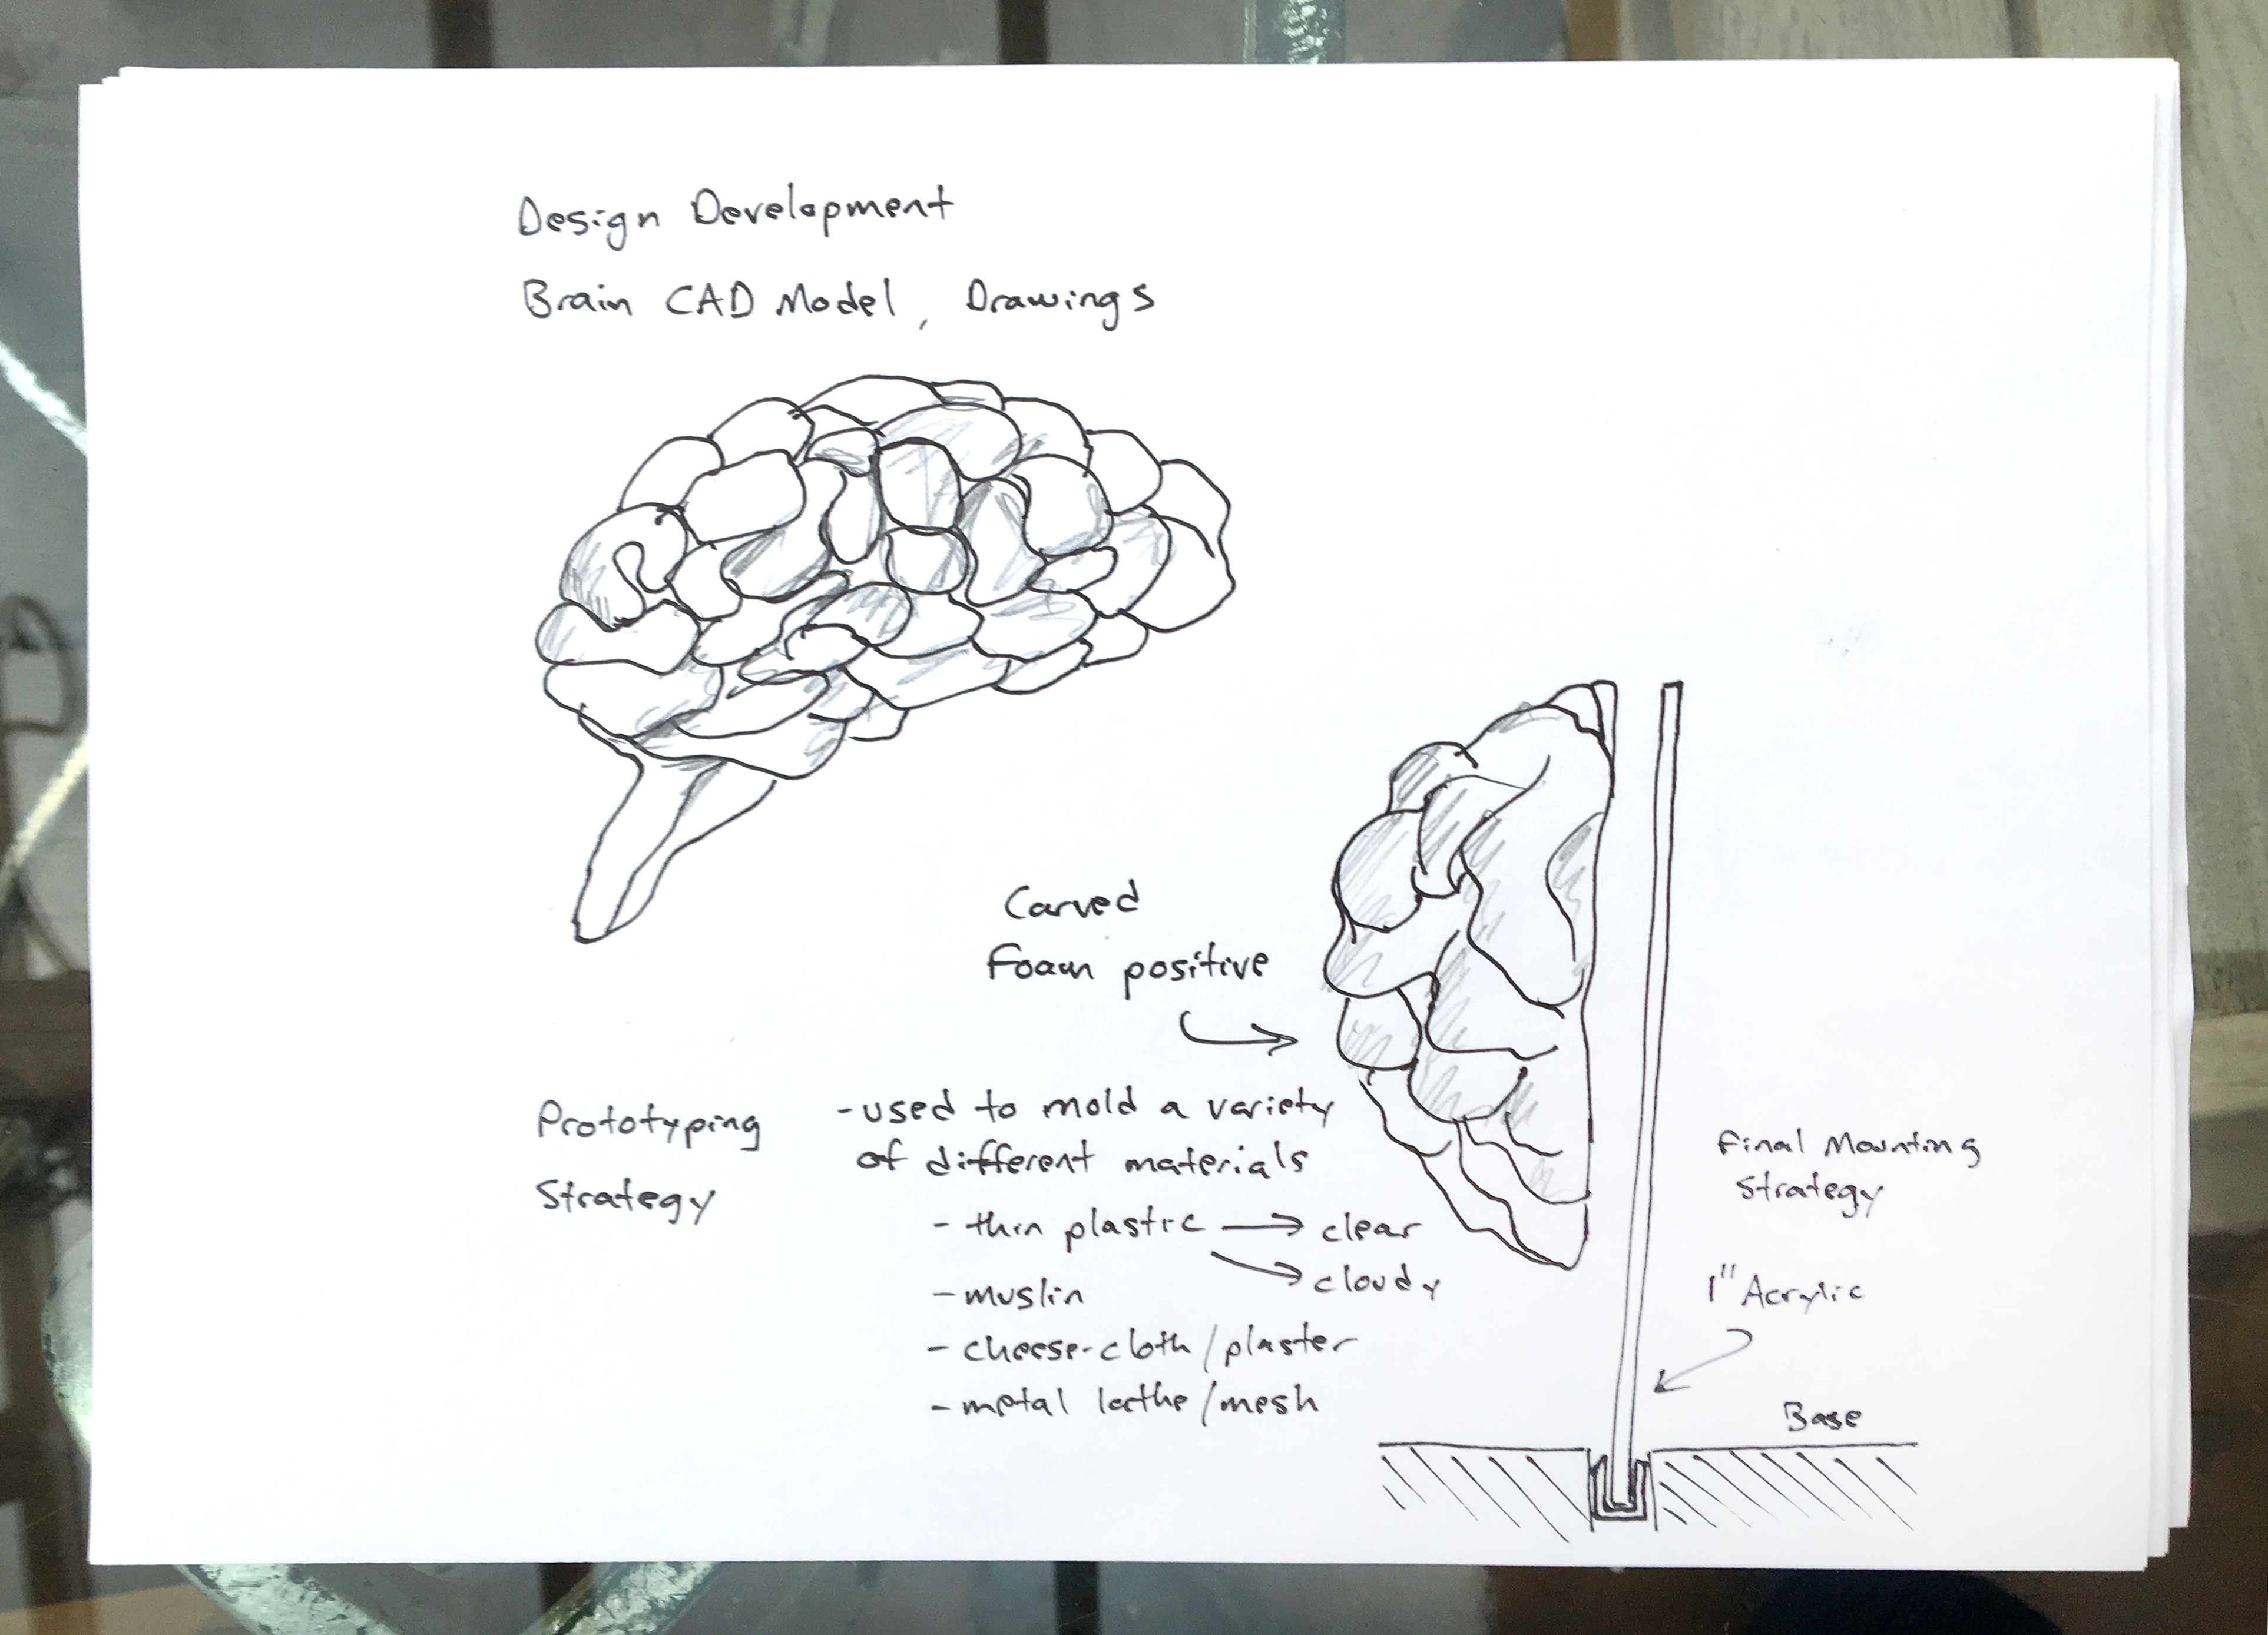 Design Development
Brain CAD Model, Drawings
Carved
Foam positive
Prototyping
Strategy
-used to mold a variety
of different materials
- thin plastic → clear
→ cloudy
- muslin
- cheese-cloth/plaster
- metal lathe/mesh
Final Mounting
Strategy
1" Acrylic
Base